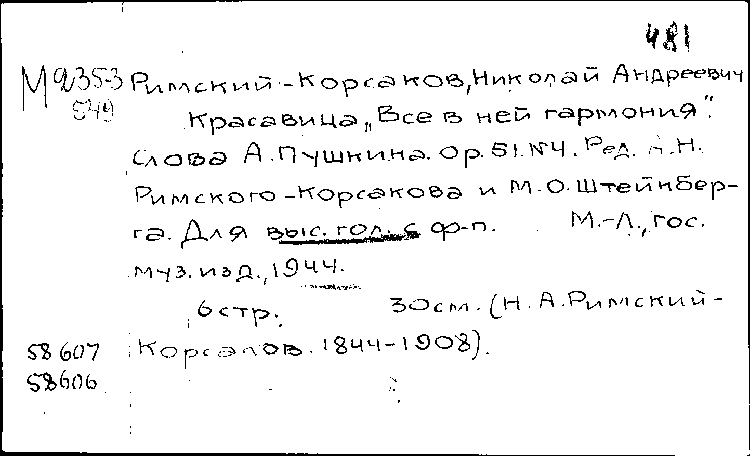 481
М 9353 Римский-Корсаков, Николай Андреевич
549
Красавица „Все в ней гармония".
Слова А. Пушкина. Ор. 51. №4. Ред. А.Н.
Римского-Корсакова и М.О. Штейнбер-
га. Для выс. гол. с ф-п. М.-Л., Гос.
муз. изд., 1944.
6 стр. 30см. (Н. А. Римский-
58607 Корсаков. 1844-1908).
58606